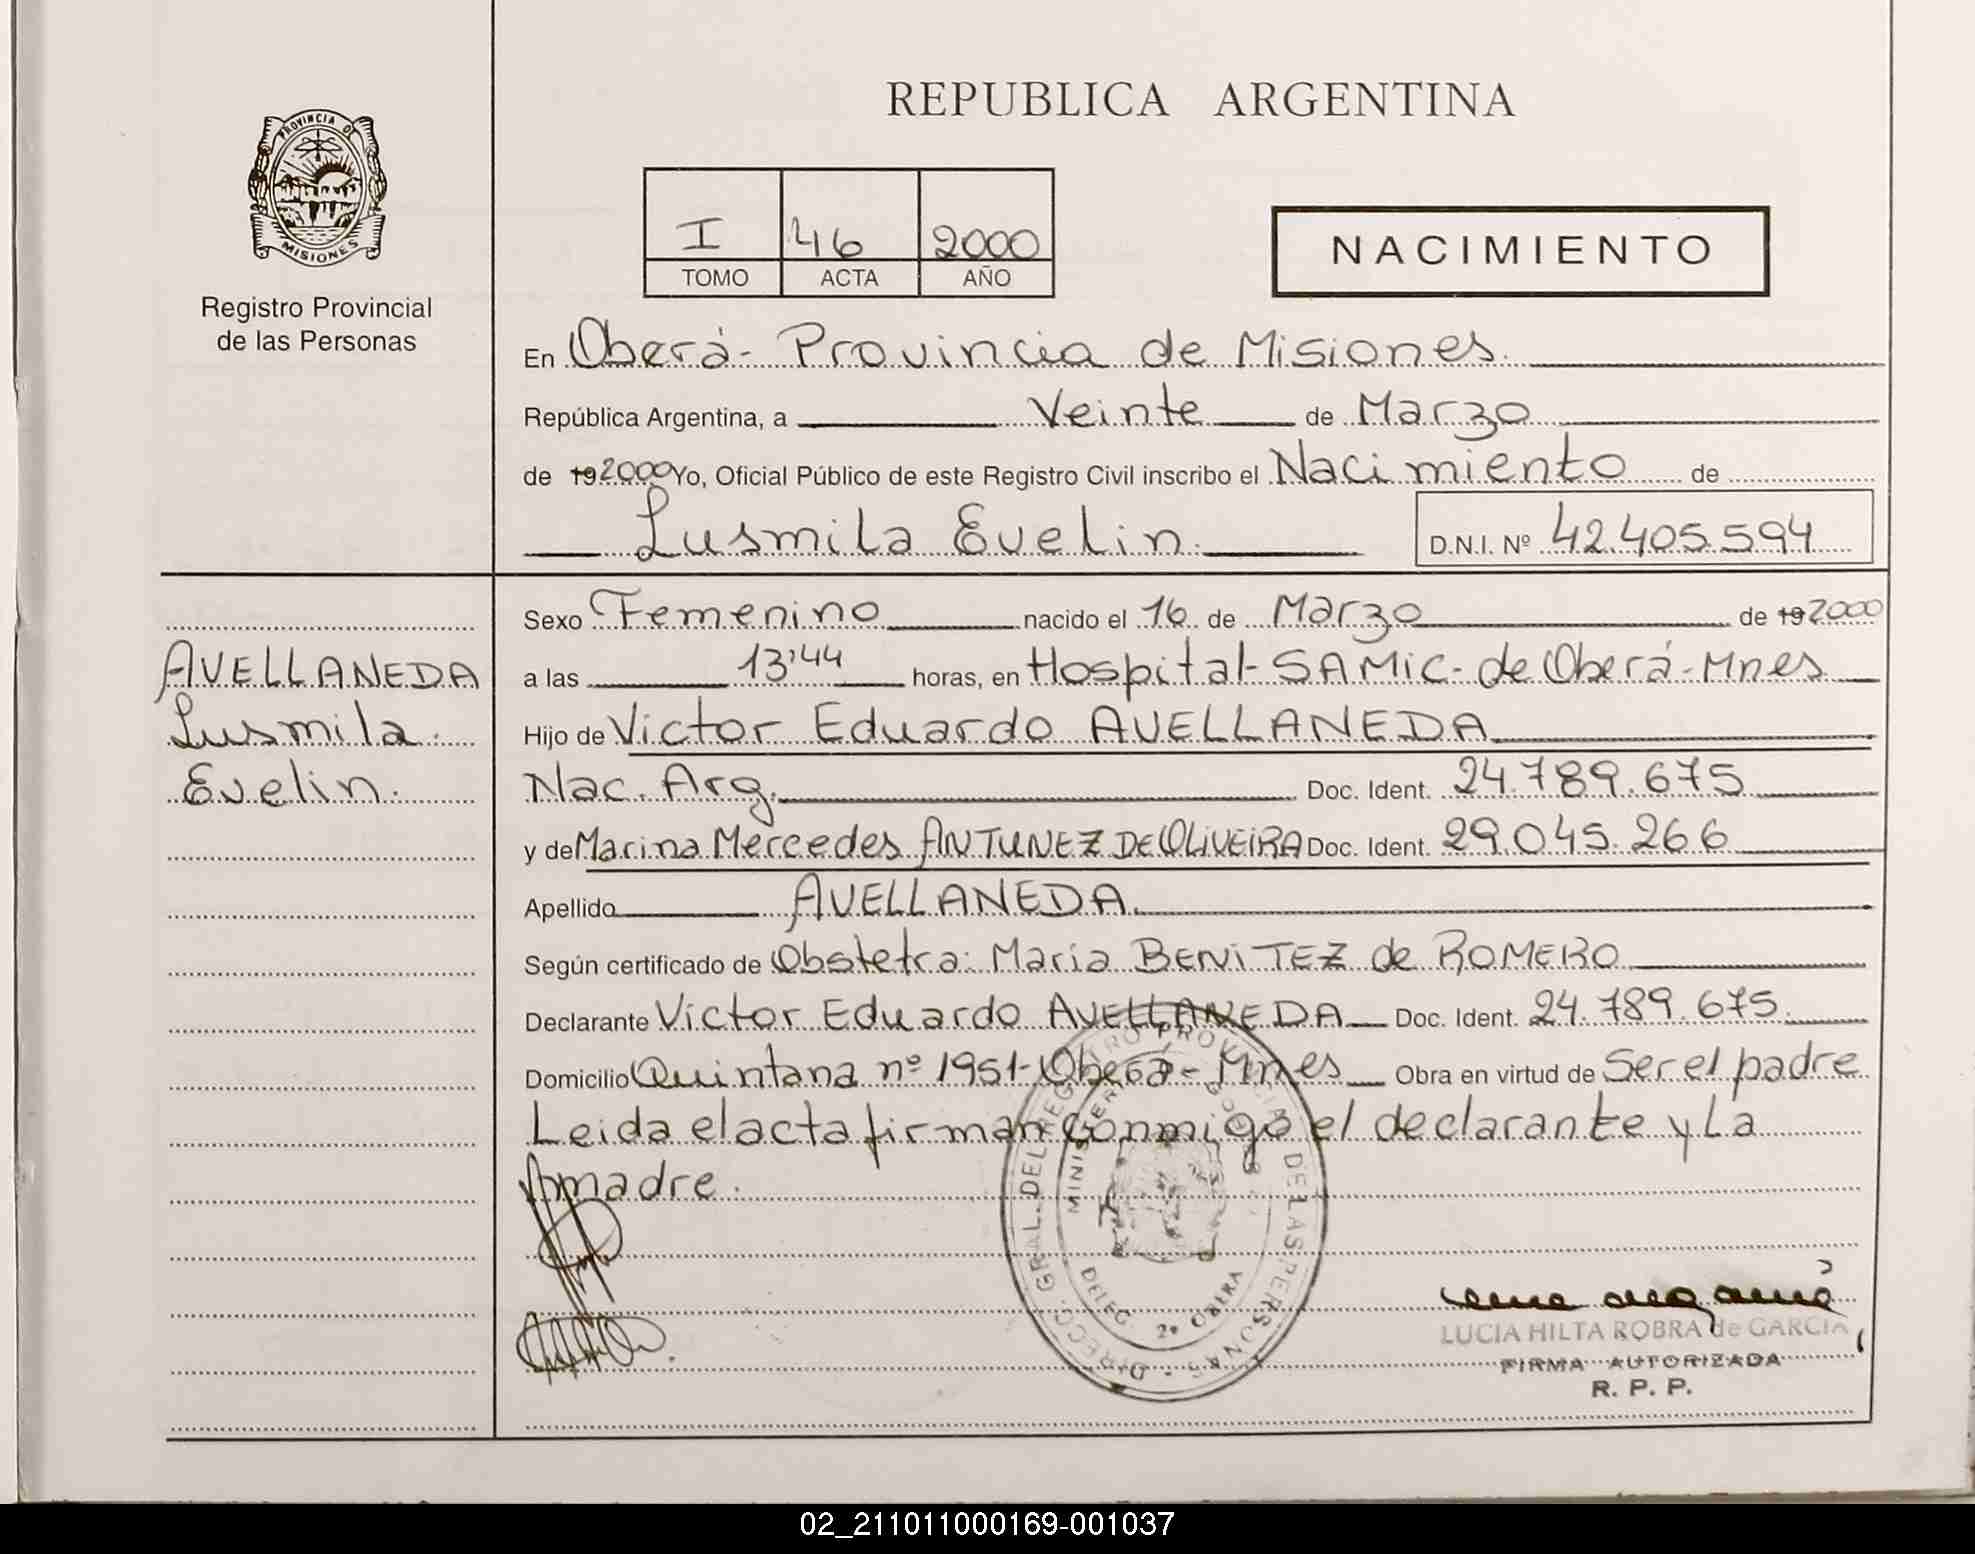 REPUBLICA ARGENTINA
PROVINCIA DE
MISIONES
Registro Provincial
de las Personas
I 46 2000
TOMO ACTA AÑO
NACIMIENTO
En Oberá - Provincia de Misiones.
República Argentina, a Veinte de Marzo
de 19 2000 Yo, Oficial Público de este Registro Civil inscribo el Nacimiento de
Lusmila Evelin. D.N.I. Nº 42.405.594
Sexo Femenino nacido el 16 de Marzo de 19 2000
a las 13'44 horas, en Hospital - SAMIC - de Oberá - Mnes
Hijo de Victor Eduardo AVELLANEDA
Nac. Arg. Doc. Ident. 24.789.675
y de Marina Mercedes ANTUNEZ DE OLIVEIRA Doc. Ident. 29.045.266
Apellido AVELLANEDA.
Según certificado de Obstetra: Maria BENITEZ de ROMERO
Declarante Victor Eduardo AVELLANEDA Doc. Ident. 24.789.675.
Domicilio Quintana nº 1951 - Oberá - Mnes Obra en virtud de Ser el padre
Leida el acta firman conmigo el declarante y La
madre.
AVELLANEDA
Lusmila
Evelin.
DIRECC. GRAL. DEL REGISTRO PROVINCIAL DE LAS PERSONAS
DELEG. 2º OBERA
LUCIA HILTA ROBRA de GARCIA
FIRMA AUTORIZADA
R. P. P.
02_211011000169-001037